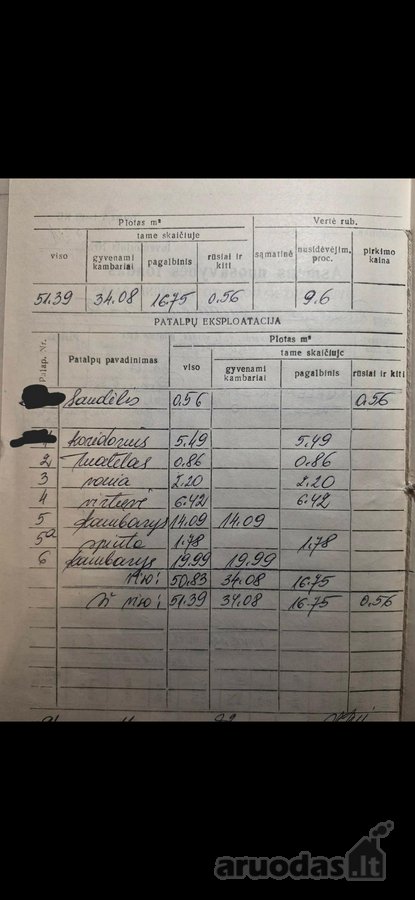 Plotas m² Vertė rub.
viso tame skaičiuje sąmatinė nusidėvėjim. proc. pirkimo kaina
gyvenami kambariai pagalbinis rūsiai ir kiti
51.39 34.08 16.75 0.56 9.6
PATALPŲ EKSPLOATACIJA
Patalp. Nr. Patalpų pavadinimas Plotas m²
viso tame skaičiuje
gyvenami kambariai pagalbinis rūsiai ir kiti
Sandėlis 0.56 0.56
koridorius 5.49 5.49
2 tualetas 0.86 0.86
3 vonia 2.20 2.20
4 virtuvė 6.42 6.42
5 kambarys 14.09 14.09
5a spinta 1.78 1.78
6 kambarys 19.99 19.99
viso: 50.83 34.08 16.75
Iš viso: 51.39 34.08 16.75 0.56
aruodas.lt